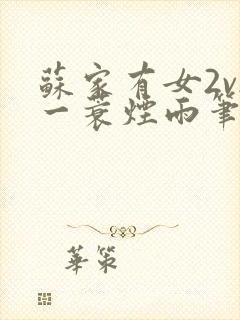 蘇家有女2v
一蓑煙雨筆
華策